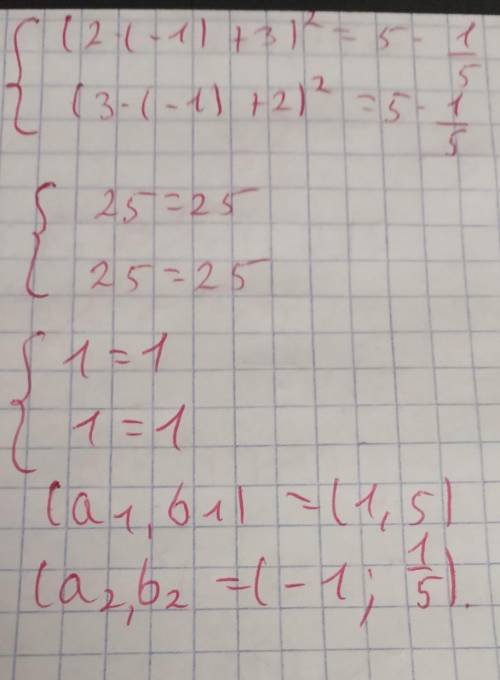 (2·(-1)+3)² = 5·1/5
(3·(-1)+2)² = 5·1/5
25=25
25=25
1=1
1=1
(a1,b1) =(1,5)
(a2,b2 =(-1; 1/5).